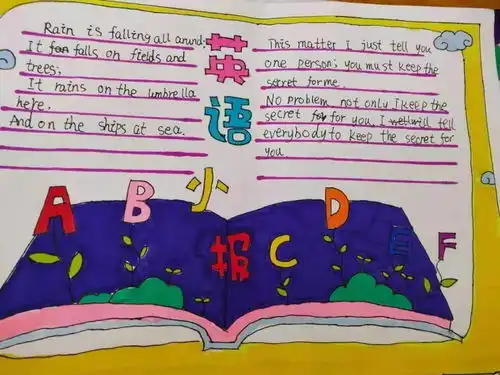 Rain is falling all around:
It falls on fields and
trees;
It rains on the umbrella
here,
And on the ships at sea.
英
语
This matter I just tell you
one person, you must keep the
secret for me.
No problem, not only I keep the
secret for you, I will tell
everybody to keep the secret for
you.
小
报
A B C D E F